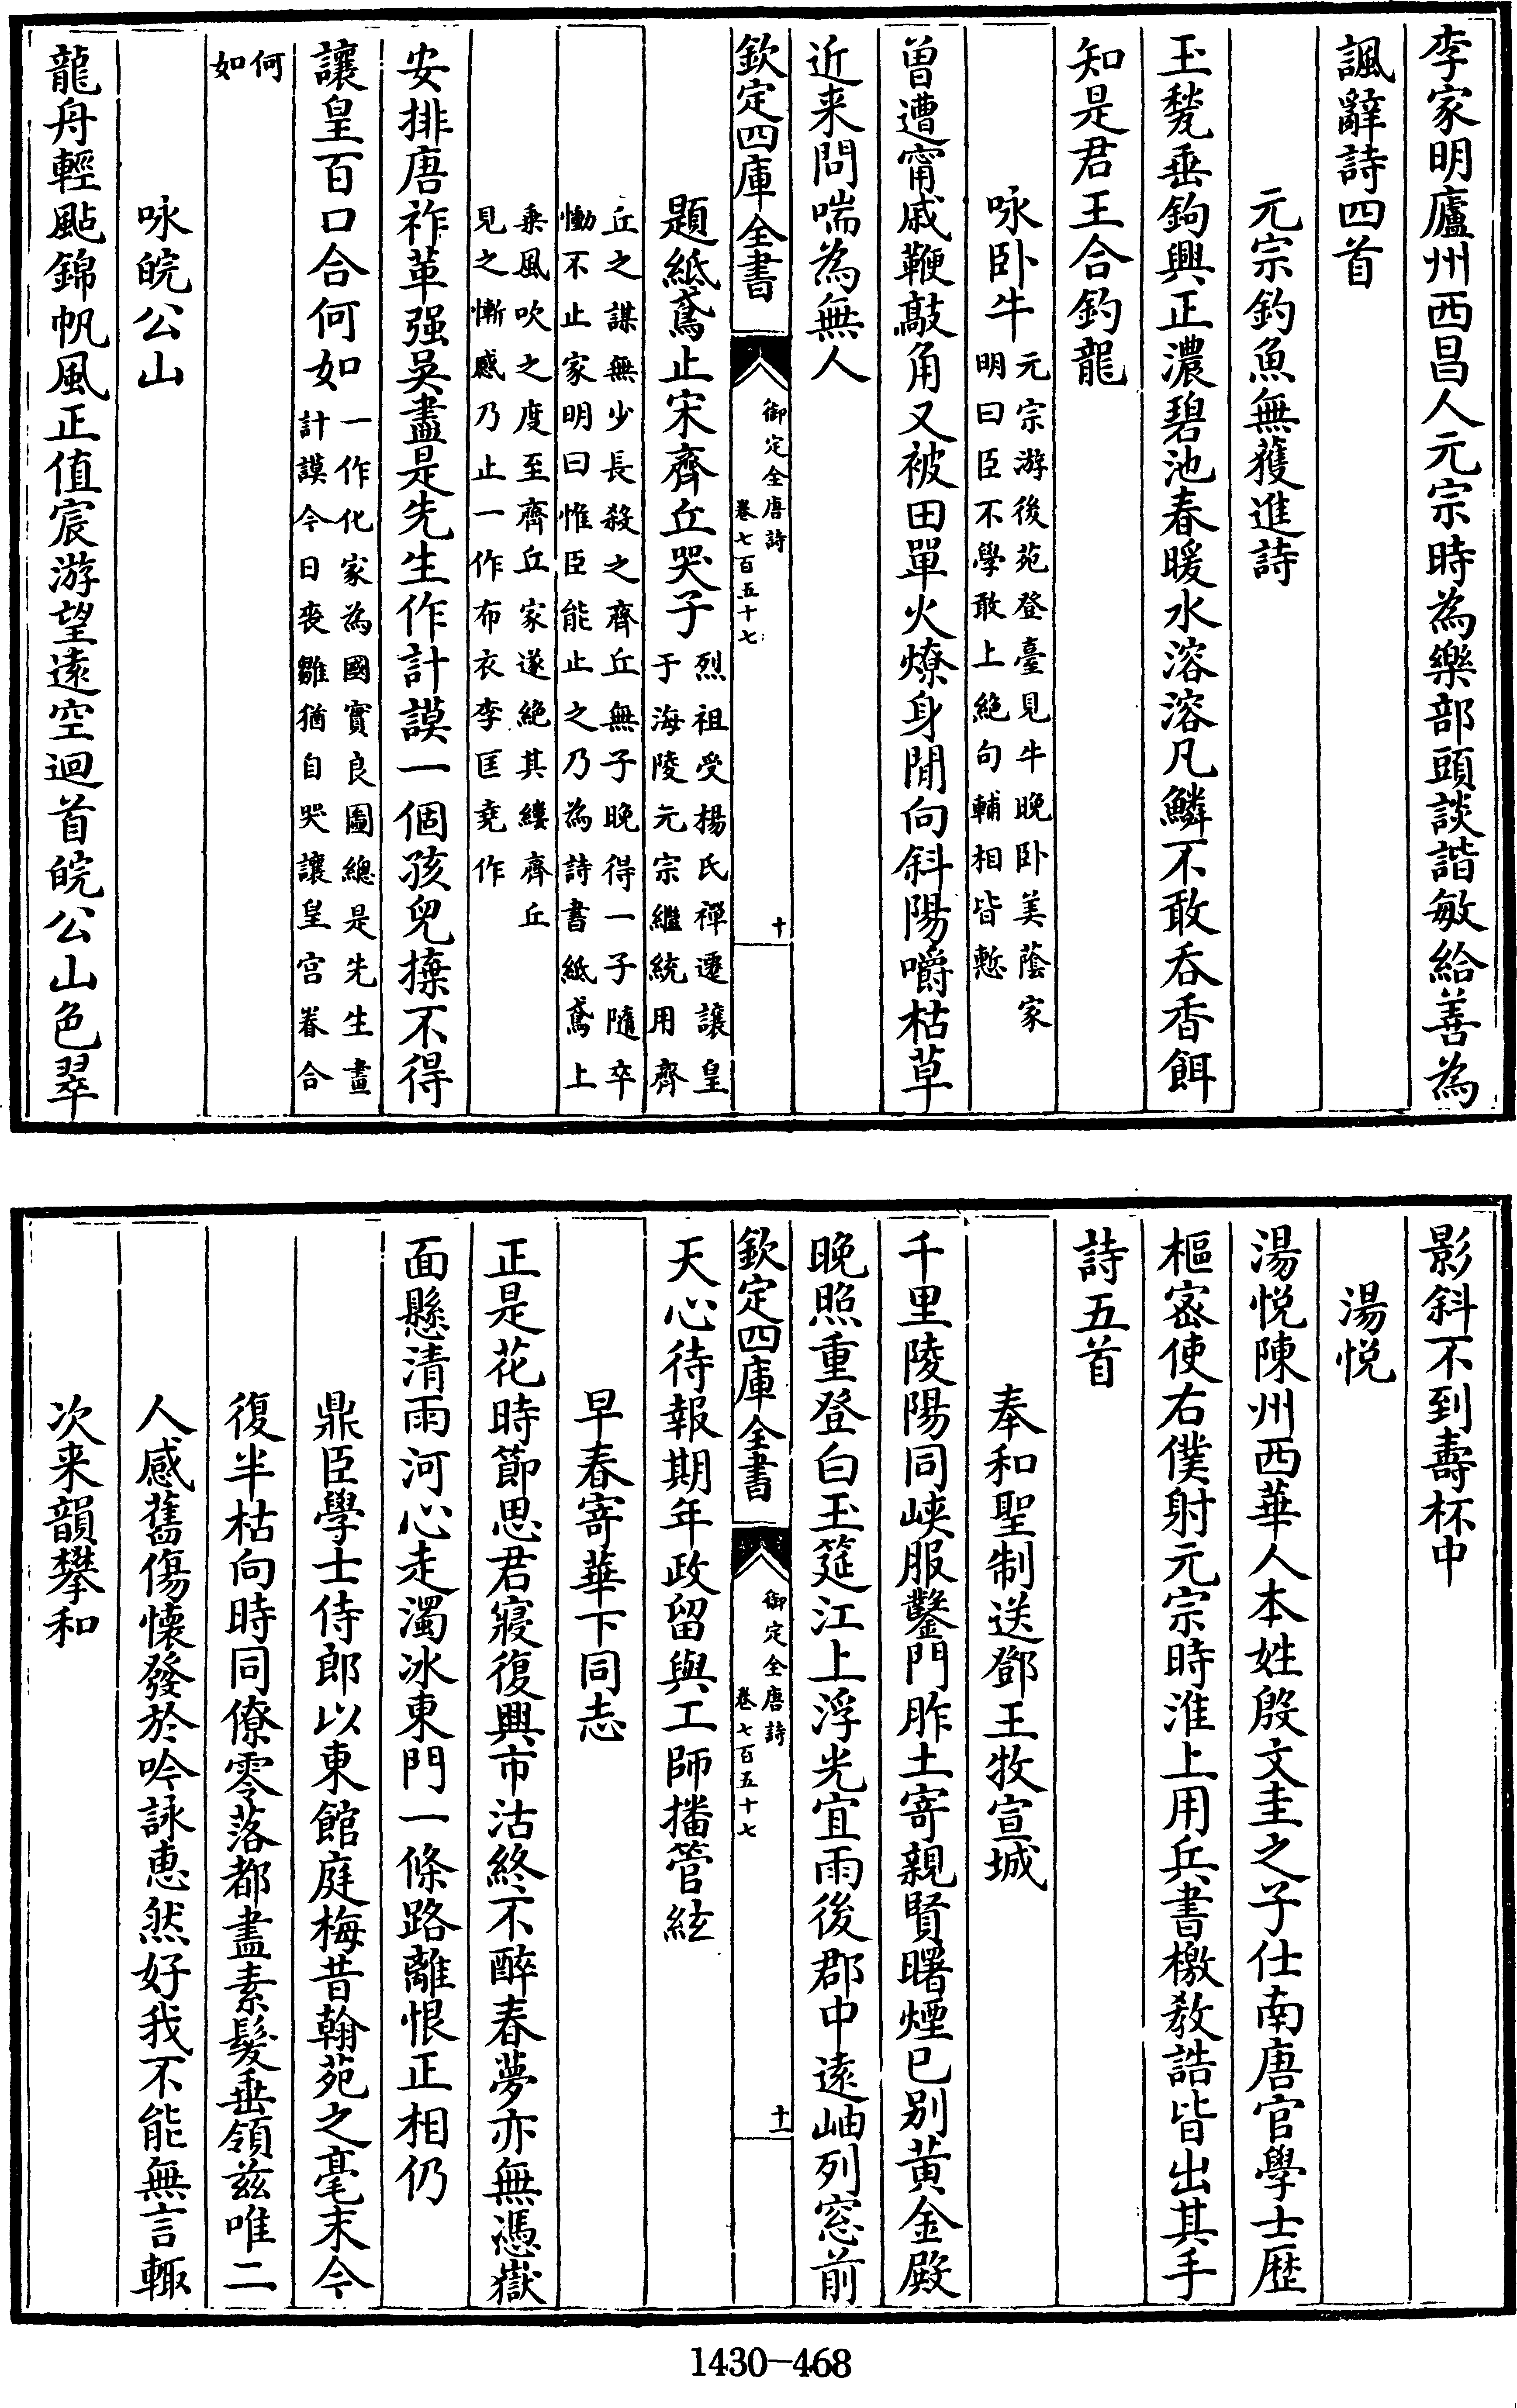 李家明廬州西昌人元宗時為樂部頭談諧敏給善為
諷辭詩四首
元宗釣魚無獲進詩
玉甃垂鉤興正濃碧池春暖水溶溶凡鱗不敢吞香餌
知是君王合釣龍
咏卧牛元宗游後苑登臺見牛晚卧美蔭家
明曰臣不學敢上絶句輔相皆慙
曾遭甯戚鞭敲角又被田單火燎身閒向斜陽嚼枯草
近来問喘為無人
欽定四庫全書
御定全唐詩
卷七百五十七
十
題紙鳶止宋齊丘哭子烈祖受揚氏禪遷讓皇
于海陵元宗繼統用齊
丘之謀無少長殺之齊丘無子晚得一子隨卒
慟不止家明曰惟臣能止之乃為詩書紙鳶上
乘風吹之度至齊丘家遂絶其縷齊丘
見之慚感乃止一作布衣李匡堯作
安排唐祚革强吳盡是先生作計謨一個孩兒㨿不得
讓皇百口合何如一作化家為國實良圖總是先生畫
計謨今日喪雛猶自哭讓皇宫眷合
何
如
咏皖公山
龍舟輕颭錦帆風正值宸游望遠空迴首皖公山色翠
影斜不到壽杯中
湯悅
湯悅陳州西華人本姓殷文圭之子仕南唐官學士歴
樞宻使右僕射元宗時淮上用兵書檄教誥皆出其手
詩五首
奉和聖制送鄧王牧宣城
千里陵陽同峽服鑿門胙土寄親賢曙煙已别黄金殿
晚照重登白玉筵江上浮光宜雨後郡中遠岫列窓前
欽定四庫全書
御定全唐詩
卷七百五十七
十一
天心待報期年政留與工師播管絃
早春寄華下同志
正是花時節思君寢復興市沽終不醉春夢亦無憑嶽
面懸清雨河心走濁冰東門一條路離恨正相仍
鼎臣學士侍郎以東館庭梅昔翰苑之毫末今
復半枯向時同僚零落都盡素髪垂領兹唯二
人感舊傷懷發於吟詠恵然好我不能無言輙
次来韻攀和
1430-468